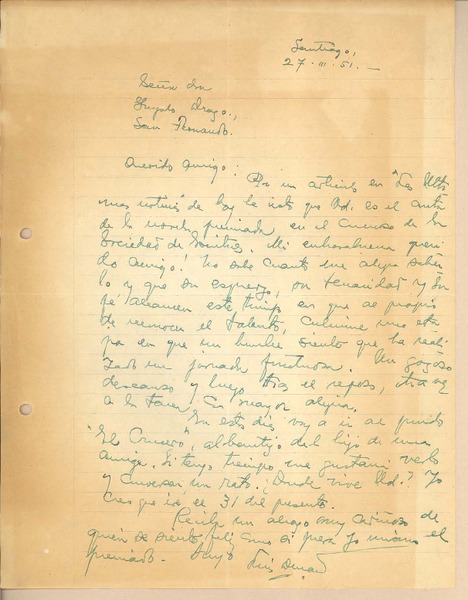 Santiago,
27. III. 51.—
Señor don
Gonzalo Drago.,
San Fernando.
Querido Amigo:
Por un artículo en "Las Últi
mas noticias" de hoy he visto que Ud. es el autor
de la novela premiada en el Concurso de la
Sociedad de Escritores. Mi enhorabuena queri
do amigo! No sabe cuanto me alegra saber
lo y que su esfuerzo, su tenacidad y su
fé alcancen este tiempo en que es propio
de reconocer el talento, culmine una eta
pa en que un hombre siente que ha reali
zado una jornada fructuosa. Un gozoso
descanso y luego tras el reposo, otra vez
a la tarea. Con mayor alegría.
En estos días voy a ir al fundo
"El Crucero", al bautizo del hijo de una
amiga. Si tengo tiempo me gustaría verlo
y conversar un rato. ¿Donde vive Ud.? Yo
creo que iré el 31 del presente.
Reciba un abrazo muy cariñoso de
quien se siente feliz como si fuera yo mismo el
premiado. Suyo Luis Durand